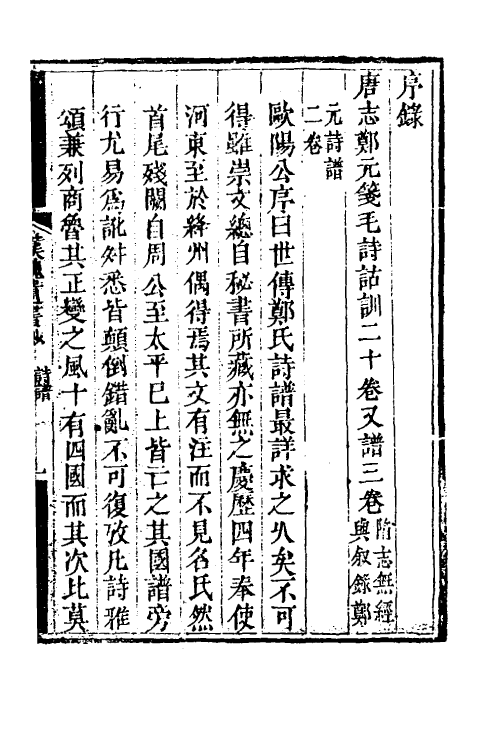 序錄
唐志鄭元箋毛詩詁訓二十卷又譜三卷隋志無經與叙錄鄭
元詩譜二卷
歐陽公序曰世傳鄭氏詩譜最詳求之久矣不可
得雖崇文總自秘書所藏亦無之慶歷四年奉使
河東至於絳州偶得焉其文有注而不見名氏然
首尾殘闕自周公至太平巳上皆亡之其國譜旁
行尤易爲訛舛悉皆顛倒錯亂不可復攷凡詩雅
頌兼列商魯其正變之風十有四國而其次比莫
漢魏遺書鈔
詩譜